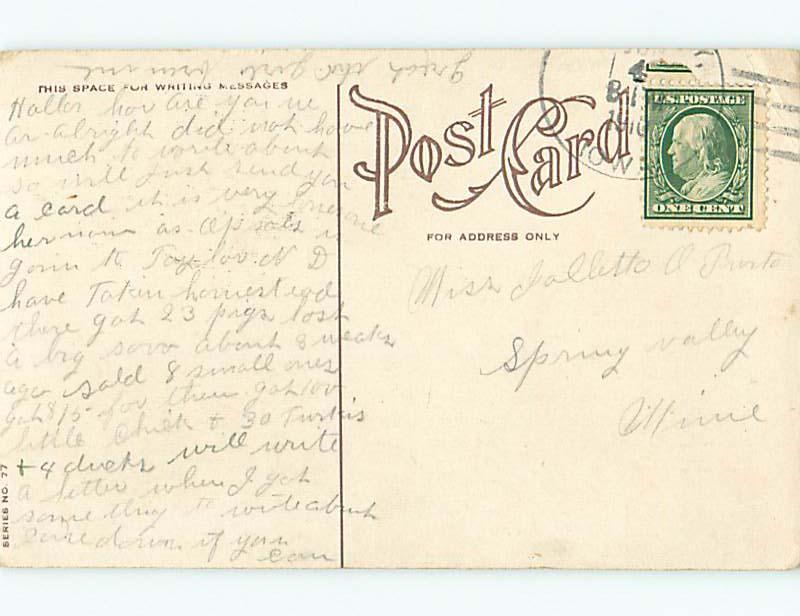 THIS SPACE FOR WRITING MESSAGES
Hallor hov are you we
ar alright did not have
much to write about
so will just send you
a card it is very lonesome
her now as
goin to Taylor N D
have Taken homestead
there got 23 pigs lost
a big sovo about 3 weaks
ago sold 8 small ones
got $15 for them got 100
little Chick + 30 Turkis
+ 4 ducks will write
a letter when I got
some thing to write about
come down if you
can
SERIES NO. 77
Post Card
FOR ADDRESS ONLY
4
1910
IOWA
U.S. POSTAGE
ONE CENT
Miss
Spring valley
Minn